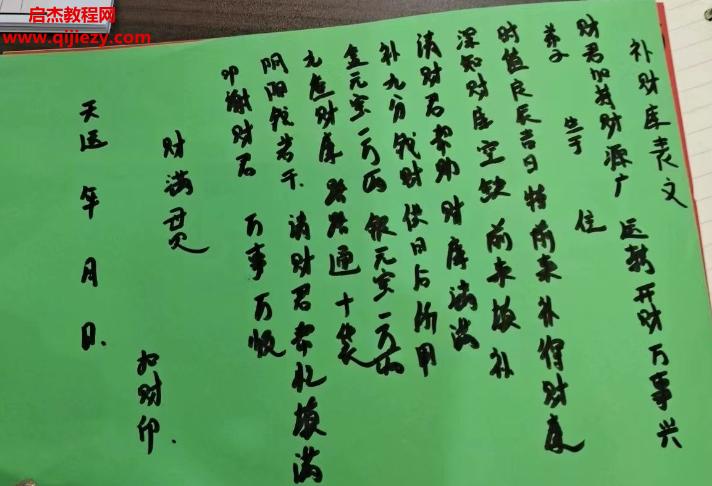 启杰教程网
www.qijiezy.com
补财库表文
财君加持财源广 运转开财万事兴
生于 住
时值良辰吉日特前来补得财库
深知财库空缺 前来填补
请财君帮助 财库满满
补九分钱财 供日后所用
金元宝一万两 银元宝一万两
九库财库 路路通十袋
阴阳钱若干 请财君帮忙填满
叩谢财君 万事万顺
财满贯
扣财印.
天运 年 月 日.